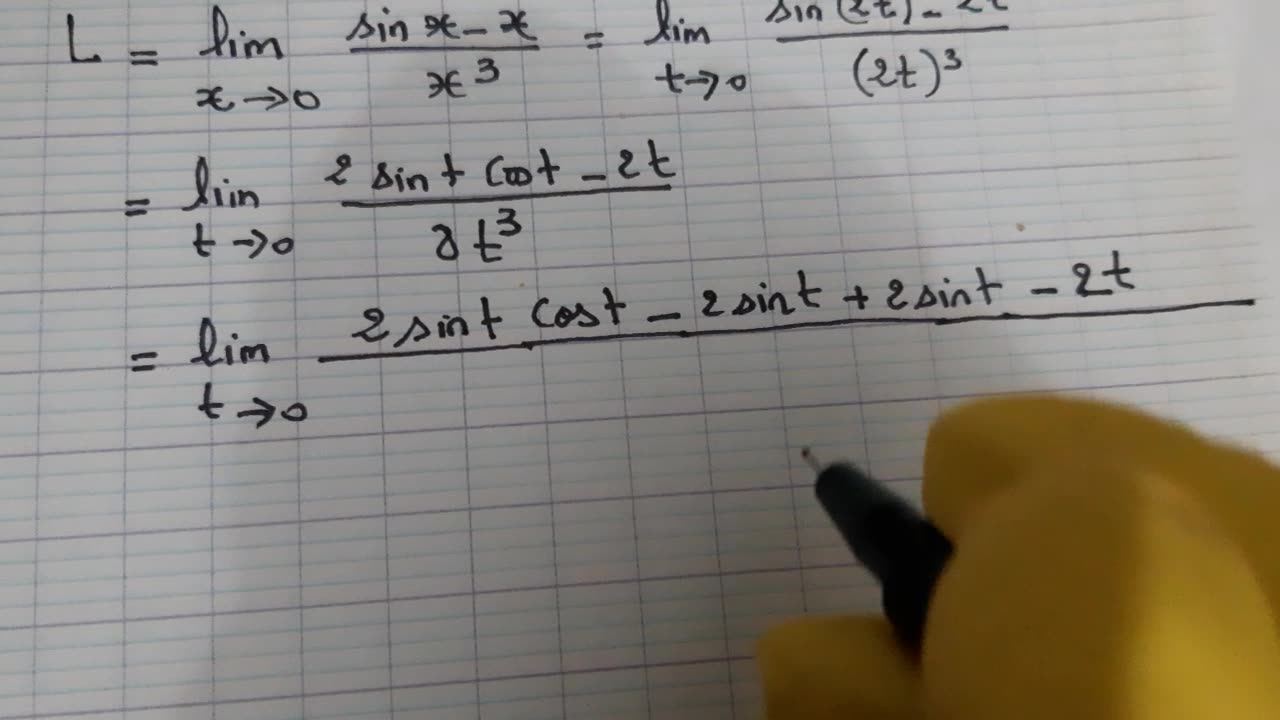 L = lim x→0 (sin x - x)/x³ = lim t→0 (sin(2t) - 2t)/(2t)³
= lim t→0 (2 sin t cos t - 2t)/(8t³)
= lim t→0 2 sin t cos t - 2 sin t + 2 sin t - 2t